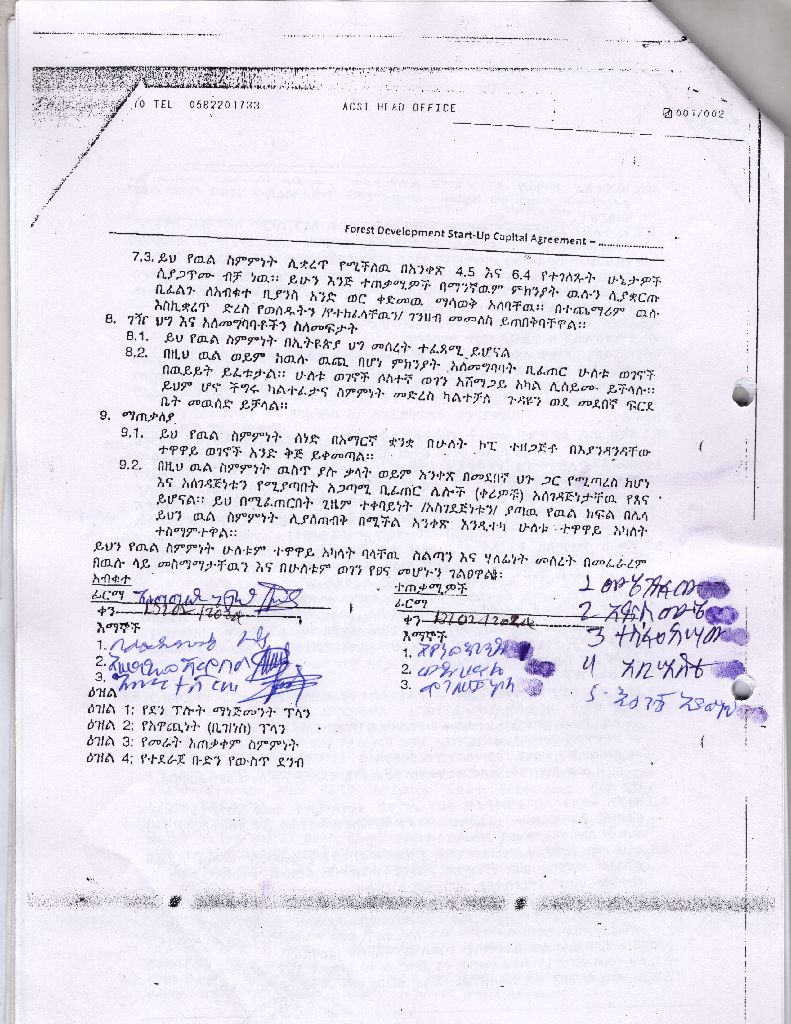 /0 TEL 0582201733 ACSI HEAD OFFICE 001/002
Forest Development Start-Up Capital Agreement – ..................
7.3. ይህ የዉል ስምምነት ሊቋረጥ የሚችለዉ በአንቀጽ 4.5 እና 6.4 የተገለጹት ሁኔታዎች
ሲያጋጥሙ ብቻ ነዉ። ይሁን እንጅ ተጠቃሚዎች በማንኛዉም ምክንያት ዉሉን ሲያቋርጡ
ቢፈልጉ ለአብቁተ ቢያንስ አንድ ወር ቀድመዉ ማሳወቅ አለባቸዉ። በተጨማሪም ዉሉ
እስኪቋረጥ ድረስ የወሰዱትን /የተከፈላቸዉን/ ገንዘብ መመለስ ይጠበቅባቸዋል።
8. ገዥ ህግ እና አለመግባባቶችን ስለመፍታት
8.1. ይህ የዉል ስምምነት በኢትዮጵያ ህግ መሰረት ተፈጻሚ ይሆናል
8.2. በዚህ ዉል ወይም ከዉሉ ዉጪ በሆነ ምክንያት አለመግባባት ቢፈጠር ሁለቱ ወገኖች
በዉይይት ይፈቱታል። ሁለቱ ወገኖች ሶስተኛ ወገን አሸማጋይ አካል ሊሰይሙ ይችላሉ።
ይህም ሆኖ ችግሩ ካልተፈታና ስምምነት መድረስ ካልተቻለ ጉዳዩን ወደ መደበኛ ፍርድ
ቤት መዉሰድ ይቻላል።
9. ማጠቃለያ
9.1. ይህ የዉል ስምምነት ሰነድ በአማርኛ ቋንቋ በሁለት ኮፒ ተዘጋጅቶ በእያንዳንዳቸው
ተዋዋይ ወገኖች አንድ ቅጅ ይቀመጣል።
9.2. በዚህ ዉል ስምምነት ዉስጥ ያሉ ቃላት ወይም አንቀጽ በመደበኛ ህጉ ጋር የሚጣረስ ከሆነ
እና አስገዳጅነቱን የሚያጣበት አጋጣሚ ቢፈጠር ሌሎች (ቀሪዎቹ) አስገዳጅነታቸዉ የጸና
ይሆናል። ይህ በሚፈጠርበት ጊዜም ተቀባይነት /አስገደጅነቱን/ ያጣዉ የዉል ክፍል በሌላ
ይህን ዉል ስምምነት ሊያስጠብቅ በሚችል አንቀጽ እንዲተካ ሁለቱ ተዋዋይ አካላት
ተስማምተዋል።
ይህን የዉል ስምምነት ሁለቱም ተዋዋይ አካላት ባላቸዉ ስልጣን እና ሃላፊነት መሰረት በመፈራረም
በዉሉ ላይ መስማማታቸዉን እና በሁለቱም ወገን የፀና መሆኑን ገልፀዋል፡፡
አብቁተ ተጠቃሚዎች
ፊርማ ፊርማ
ቀን ቀን
እማኞች እማኞች
1. 1.
2. 2.
3. 3.
1
2
3
4
5
ዕዝል
ዕዝል 1; የደን ፕሎት ማነጅመንት ፕላን
ዕዝል 2; የአዋጪነት (ቢዝነስ) ፕላን
ዕዝል 3; የመሬት አጠቃቀም ስምምነት
ዕዝል 4; የተደራጀ ቡድን የውስጥ ደንብ